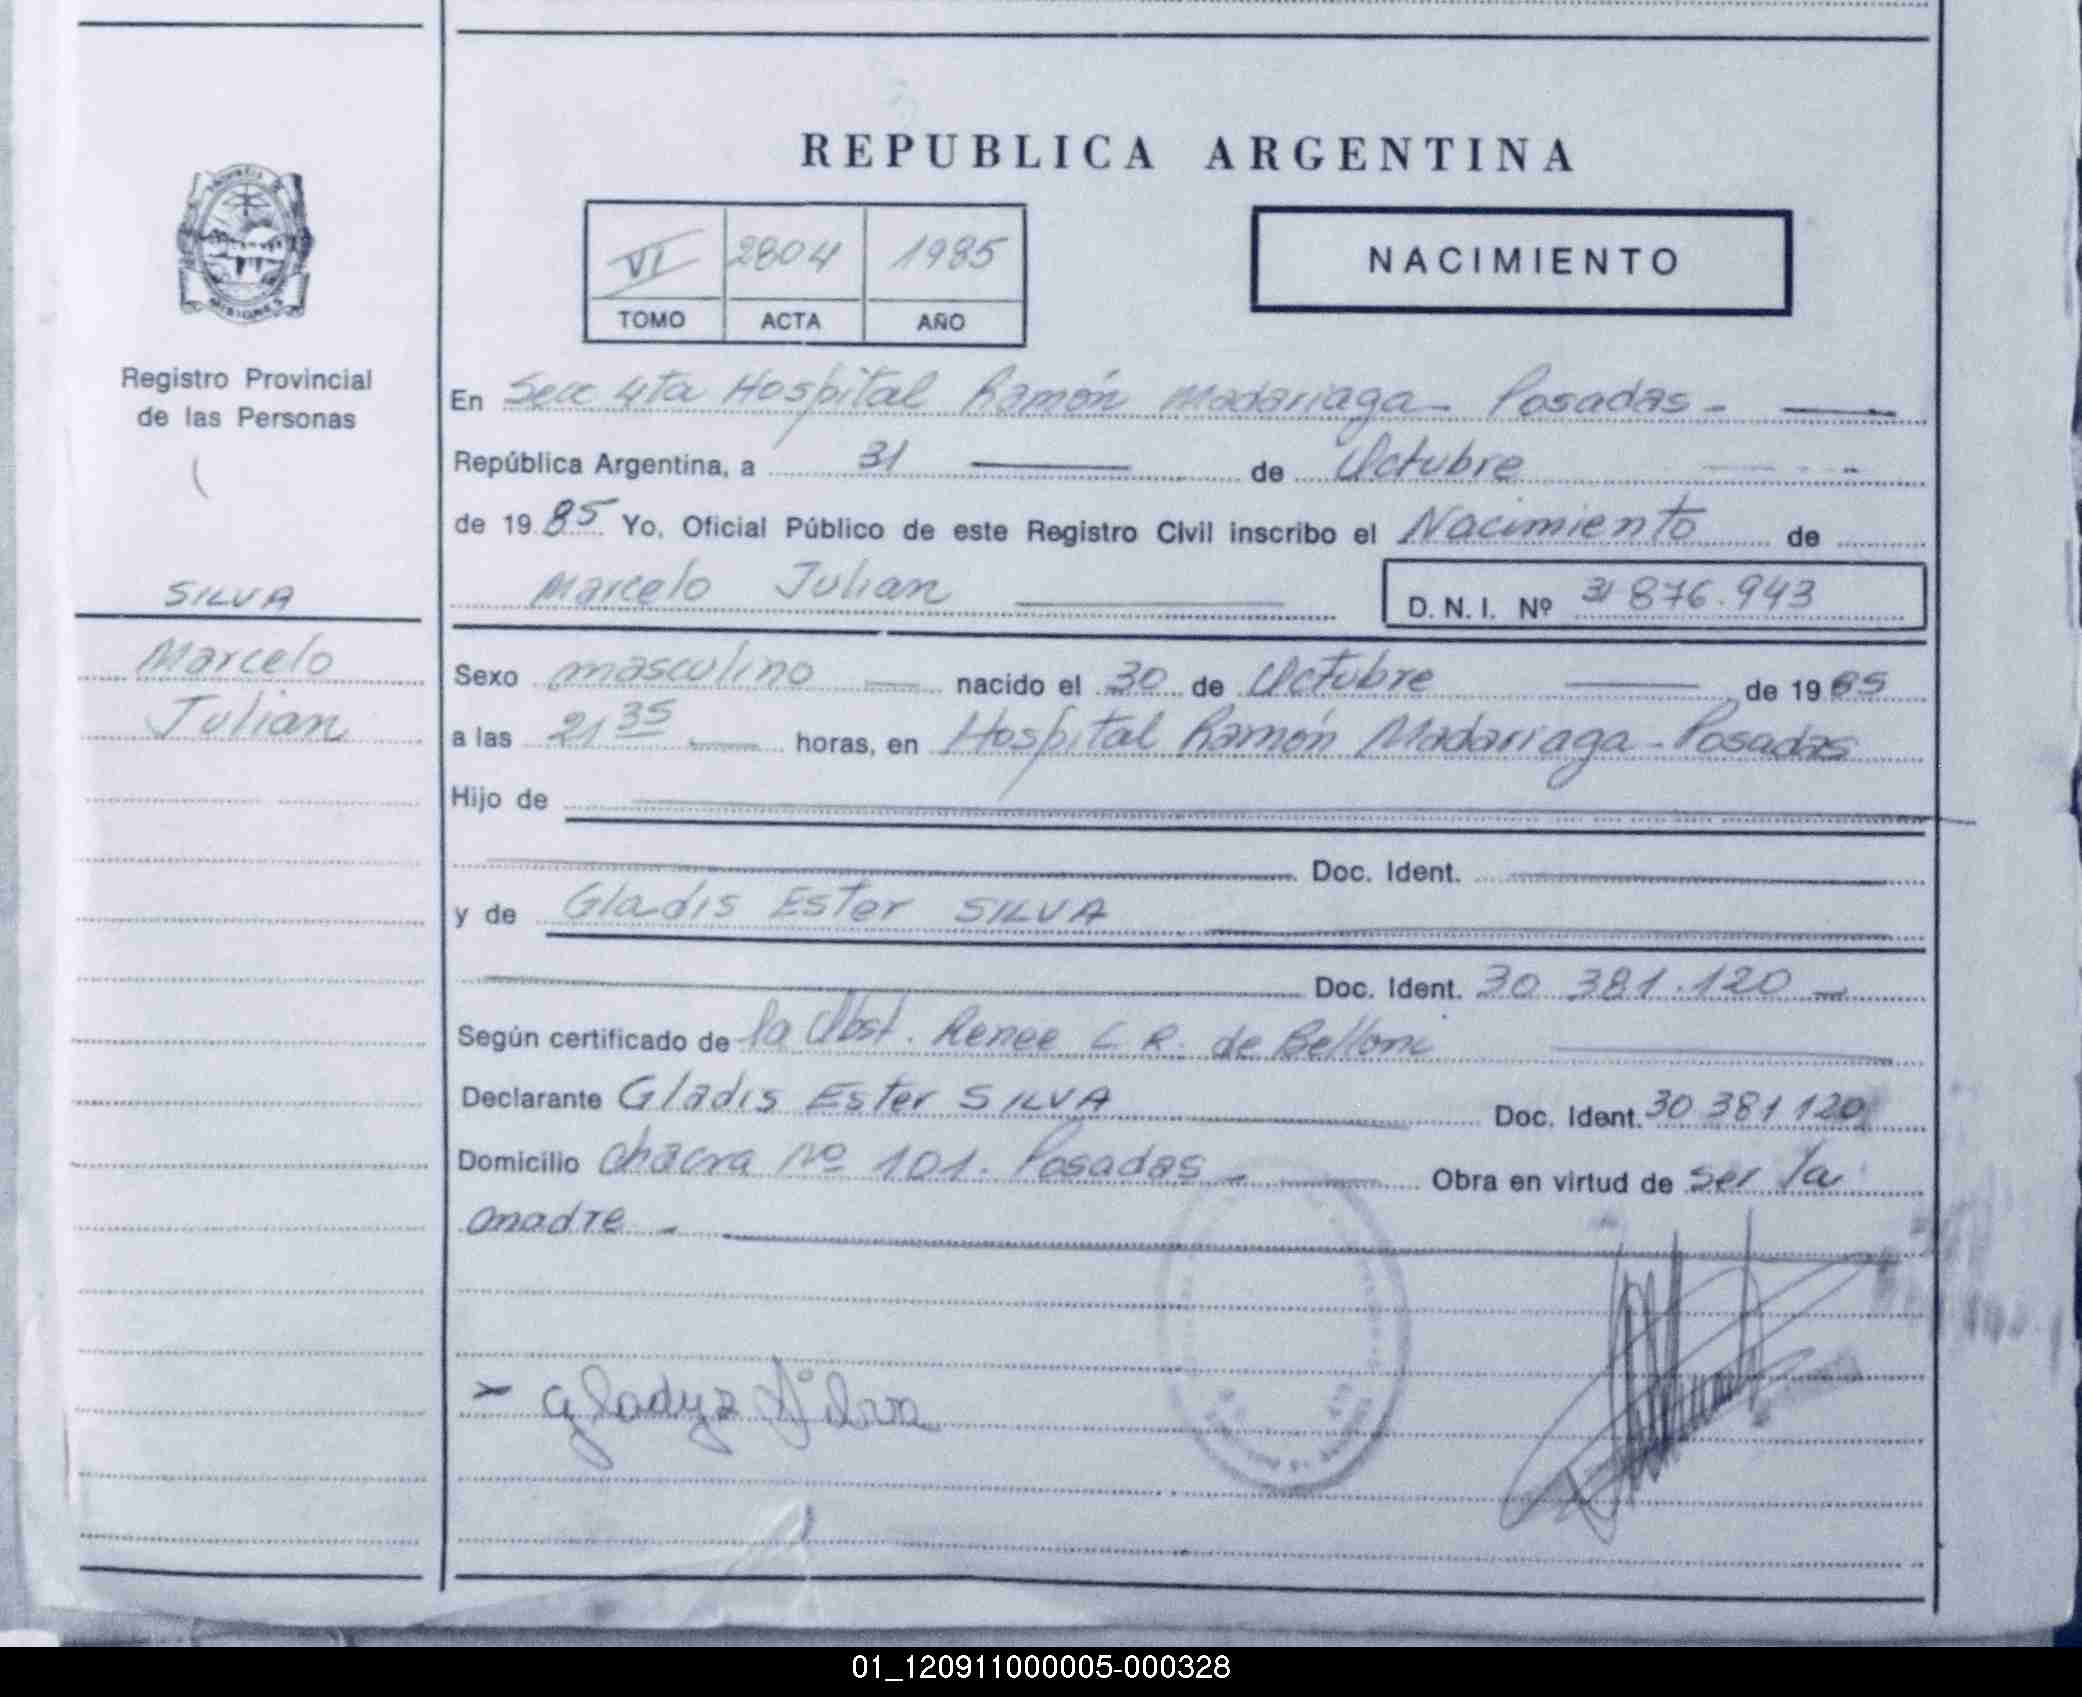 REPUBLICA ARGENTINA
VI 2804 1985
TOMO ACTA AÑO
NACIMIENTO
Registro Provincial
de las Personas
SILVA
Marcelo
Julian
En Secc 4ta Hospital Ramón Madariaga - Posadas -
República Argentina, a 31 de Octubre
de 19 85 Yo, Oficial Público de este Registro Civil inscribo el Nacimiento de
Marcelo Julian D.N.I. Nº 31 876.943
Sexo masculino nacido el 30 de Octubre de 19 85
a las 21 35 horas, en Hospital Ramón Madariaga - Posadas
Hijo de
Doc. Ident.
y de Gladis Ester SILVA
Doc. Ident. 30 381.120 -
Según certificado de la Obst. Renee C R. de Belloni
Declarante Gladis Ester SILVA Doc. Ident. 30 381 120
Domicilio chacra Nº 101. Posadas - Obra en virtud de ser la
madre -
Gladyz Silva
01_120911000005-000328